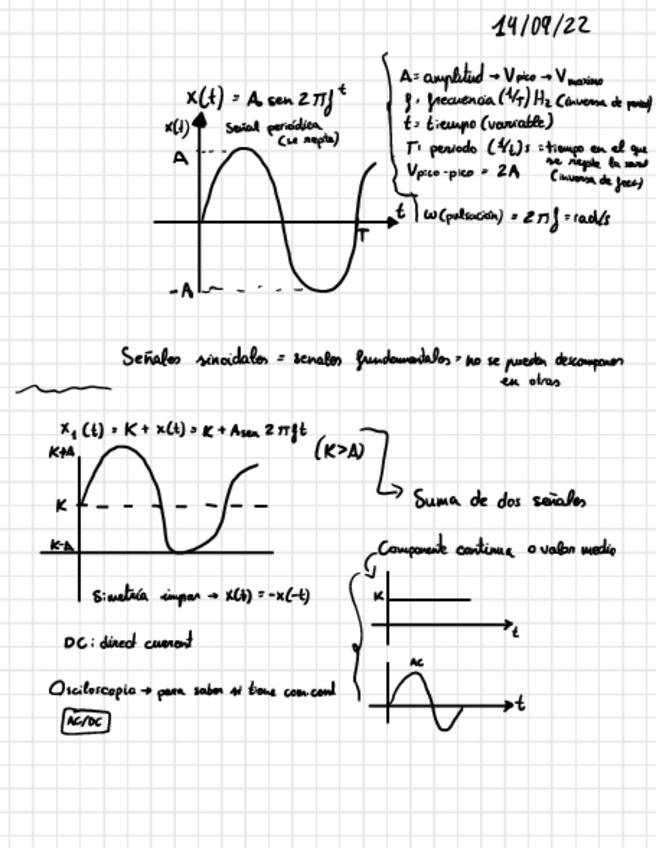 14/09/22
x(t) = A sen 2πft
x(t)
Señal periódica
(se repite)
A
-A
T
t
A = amplitud → Vpico → Vmaximo
f = frecuencia (1/T) Hz (inversa de period)
t = tiempo (variable)
T: periodo (1/t)s = tiempo en el que
se repite la
(inversa de frec)
Vpico-pico = 2A
ω (pulsación) = 2πf = rad/s
Señales sinoidales = senales fundamentales = no se pueden descomponer
en otras
x1(t) = K + x(t) = K + A sen 2πft
(K>A)
K+A
K
K-A
Suma de dos señales
Componente continua o valor medio
K
t
Simetría impar → x(t) = -x(-t)
DC: direct current
AC
t
Osciloscopio → para saber si tiene com.cont
AC/DC